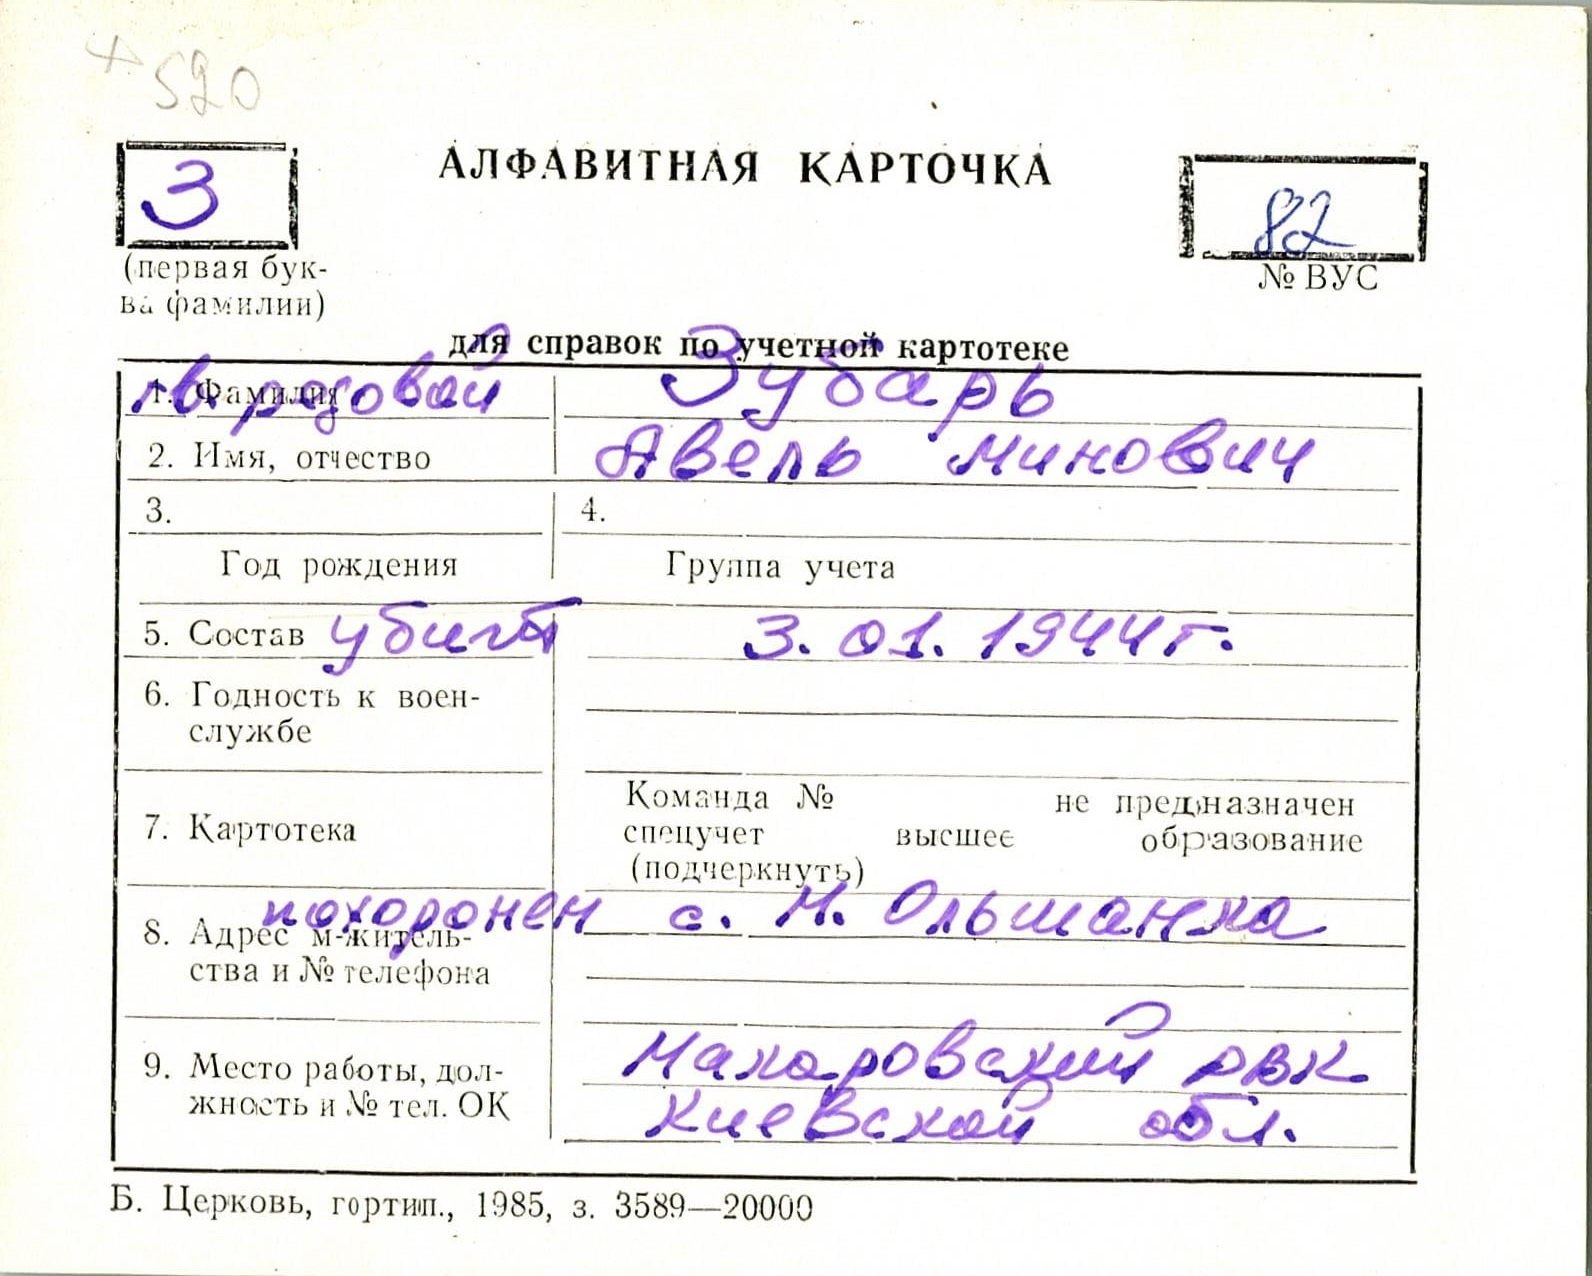 520
З
АЛФАВИТНАЯ КАРТОЧКА
82
(первая бук-
ва фамилии)
№ ВУС
для справок по учетной картотеке
1. Фамилия гв. рядовой Зубарь
2. Имя, отчество Авель Минович
3. 4.
Год рождения Группа учета
5. Состав убит 3.01.1944г.
6. Годность к воен-
службе
Команда № не предназначен
7. Картотека спецучет высшее образование
(подчеркнуть)
похоронен с. М. Ольшанка
8. Адрес м-житель-
ства и № телефона
9. Место работы, дол- Макаровский РВК
жность и № тел. ОК Киевской обл.
Б. Церковь, гортип., 1985, з. 3589—20000